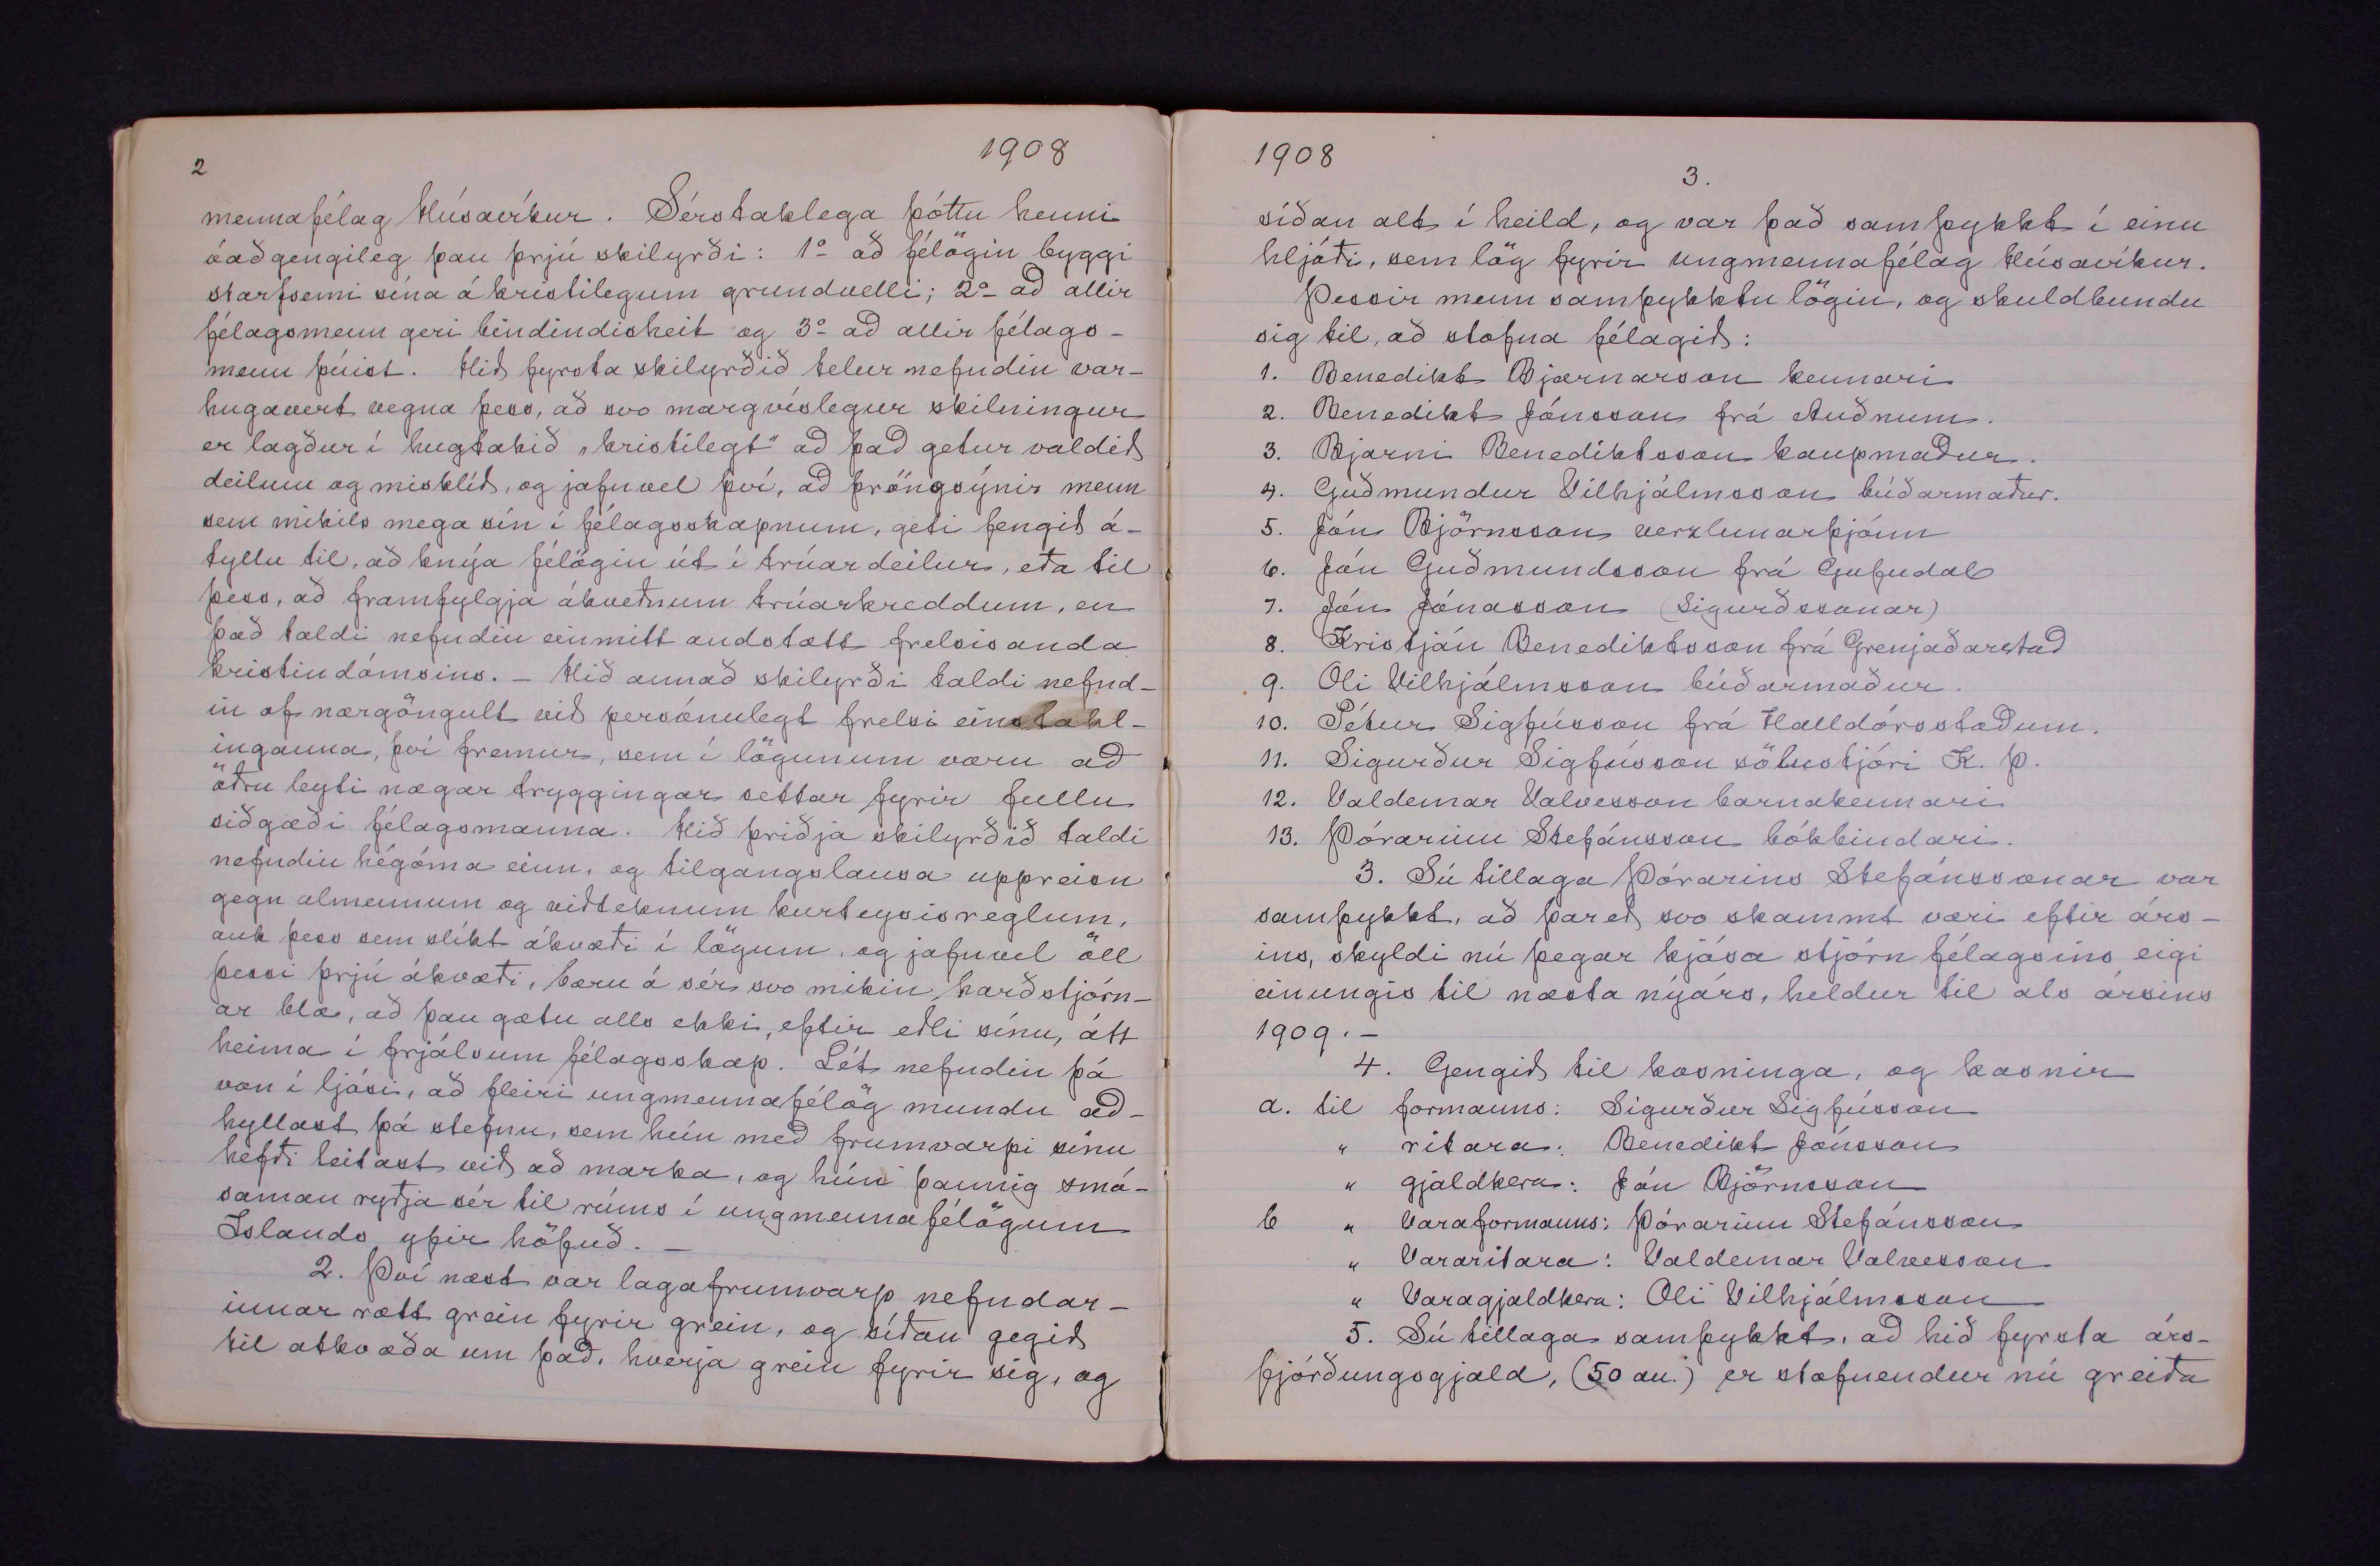 2
1908
mennafélag Húsavíkur. Sérstaklega þóttu henni
óaðgengileg þau þrjú skilyrði: 1º að félögin byggi
starfsemi sína á kristilegum grundvelli; 2º að allir
félagsmenn geri bindindisheit og 3º að allir félags-
menn þúist. Hið fyrsta skilyrðið telur nefndin var-
hugavert vegna þess, að svo margvíslegur skilningur
er lagður í hugtakið „kristilegt“ að það getur valdið
deilum og misklíð, og jafnvel því, að þröngsýnir menn
sem mikils mega sín í félagsskapnum, geti fengið á-
tyllu til, að knýja félögin út í trúardeilur, eða til
þess, að framfylgja ákveðnum trúarkreddum, en
það taldi nefndin einmitt andstætt frelsisanda
kristindómsins. - Hið annað skilyrði taldi nefnd-
in of nærgöngult við persónulegt frelsi einstakl-
inganna, því fremur, sem í lögunum væru að
öðru leyti nægar tryggingar settar fyrir fullu
siðgæði félagsmanna. Hið þriðja skilyrðið taldi
nefndin hégóma einn, og tilgangslausa uppreisn
gegn almennum og viðteknum kurteysisreglum,
auk þess sem slíkt ákvæði í lögum, og jafnvel öll
þessi þrjú ákvæði, bæru á sér svo mikin harðstjórn-
ar blæ, að þau gætu alls ekki, eftir eðli sínu, átt
heima í frjálsum félagsskap. Lét nefndin þá
von í ljósi, að fleiri ungmennafélög mundu að-
hyllast þá stefnu, sem hún með frumvarpi sínu
hefði leitast við að marka, og hún þannig smá-
saman ryðja sér til rúms í ungmennafélögum
Islands yfir höfuð. -
2. Því næst var lagafrumvarp nefndar-
innar rætt grein fyrir grein, og síðan gegið
til atkvæða um það, hverja grein fyrir sig, og
1908
3.
síðan alt í heild, og var það samþykkt í einu
hljóði, sem lög fyrir ungmennafélag Húsavíkur.
Þessir menn samþykktu lögin, og skuldbundu
sig til, að stofna félagið:
1. Benedikt Bjarnarson kennari
2. Benedikt Jónsson frá Auðnum.
3. Bjarni Benediktsson kaupmaður.
4. Guðmundur Vilhjálmsson búðarmaður.
5. Jón Björnsson verzlunarþjónn
6. Jón Guðmundsson frá Gufudal
7. Jón Jónasson (Sigurðssonar)
8. Kristján Benediktsson frá Grenjaðarstað
9. Oli Vilhjálmsson búðarmaður.
10. Pétur Sigfússon frá Halldórsstöðum.
11. Sigurður Sigfússon sölustjóri K. Þ.
12. Valdemar Valvesson barnakennari
13. Þórarinn Stefánsson bókbindari.
3. Sú tillaga Þórarins Stefánssonar var
samþykkt, að þareð svo skammt væri eftir árs-
ins, skyldi nú þegar kjósa stjórn félagsins eigi
einungis til næsta nýárs, heldur til als ársins
1909. -
4. Gengið til kosninga, og kosnir
a. til formanns: Sigurður Sigfússon
" ritara: Benedikt Jónsson
" gjaldkera: Jón Björnsson
b " Varaformanns: Þórarinn Stefánsson
" Vararitara: Valdemar Valvesson
" Varagjaldkera: Oli Vilhjálmsson
5. Sú tillaga samþykkt, að hið fyrsta árs-
fjórðungsgjald, (50 au.) er stofnendur nú greiða